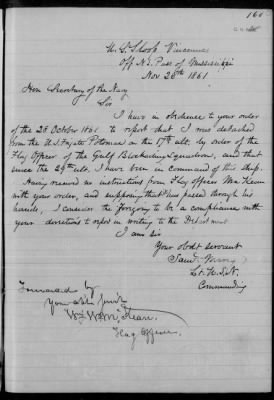 160
U.S. Sloop Vincennes
Off N.E. Pass of Mississippi
Nov 26th 1861
Hon Secretary of the Navy
Sir
I have in obedience to your order
of the 26 October 1861 to report that I was detached
from the U.S. Frigate Potomac on the 17th ult. by order of the
Flag Officer of the Gulf Blockading Squadron, and that
since the 29th ult. I have been in command of this ship.
Having received no instructions from Flag officer Wm McKean
with your order, and supposing that it has passed through his
hands, I consider the foregoing to be a compliance with
your directions to report in writing to the Department
I am sir
Your obdt servant
Saml.
Lt. U.S.N.
Commanding
Forwarded by
Your obt. Servt.
Wm W McKean.
Flag Officer.